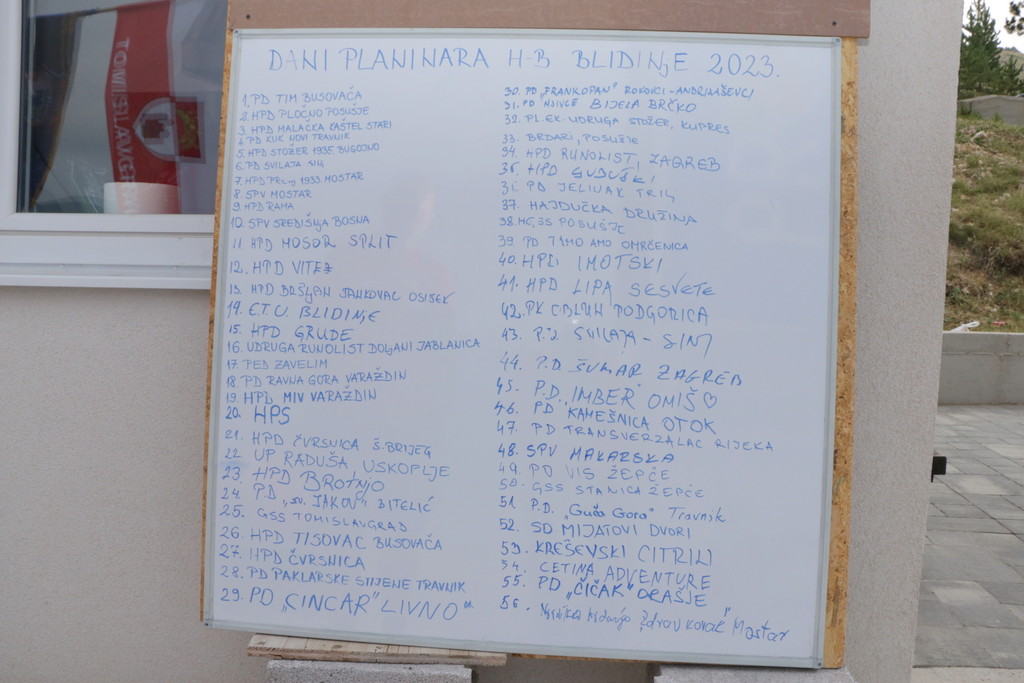 TOMISLAVGR
DANI PLANINARA H-B BLIDINJE 2023.
1. PD TIM BUSOVAČA
2. HPD PLOČNO POSUŠJE
3. HPD MALAČKA KAŠTEL STARI
4. PD KUK NOVI TRAVNIK
5. HPD STOŽER 1935. BUGOJNO
6. PD SVILAJA SINJ
7. HPD PRENJ 1933. MOSTAR
8. SPV MOSTAR
9 HPD RAMA
10. SPV SREDIŠNJA BOSNA
11 HPD MOSOR SPLIT
12. HPD VITEZ
13. HPD BRŠLJAN JANKOVAC OSIJEK
14. E.T.U. BLIDINJE
15. HPD GRUDE
16. UDRUGA RUNOLIST DOLJANI JABLANICA
17. PED ZAVELIM
18 PD RAVNA GORA VARAŽDIN
19. HPD MIV VARAŽDIN
20. HPS
21. HPD ČVRSNICA Š.BRIJEG
22 UP RADUŠA USKOPLJE
23. HPD BROTNJO
24. PD "SV. JAKOV" BITELIĆ
25. GSS TOMISLAVGRAD
26. HPD TISOVAC BUSOVAČA
27. HPD ČVRSNICA
28. PD PAKLARSKE STIJENE TRAVNIK
29. PD „CINCAR" LIVNO
30. PD „FRANKOPAN" ROKOVCI-ANDRIJAŠEVCI
31. PD BIJELA BRČKO
32. PL.EK. UDRUGA STOŽER, KUPRES
33. BRDARI, POSUŠJE
34. HPD RUNOLIST, ZAGREB
35. HPD
36. PD JELINAK TRILJ
37. HAJDUČKA DRUŽINA
38. POSUŠJE
39. PD TAMO AMO OMRČENICA
40. HPD IMOTSKI
41. HPD LIPA SESVETE
42. PK PODGORICA
43. P.D. SVILAJA - SINJ
44. P.D. ŠUMAR ZAGREB
45. P.D. "IMBER" OMIŠ ♡
46. PD "KAMEŠNICA OTOK
47. PD TRANSVERZALAC RIJEKA
48. SPV MAKARSKA
49. PD VIS ŽEPČE
50. GSS STANICA ŽEPČE
51. P.D. „Guča Gora" Travnik
52. SD MIJATOVI DVORI
53. KREŠEVSKI CITRILJ
54. CETINA ADVENTURE
55. PD „ČIČAK" ORAŠJE
56. Mostar